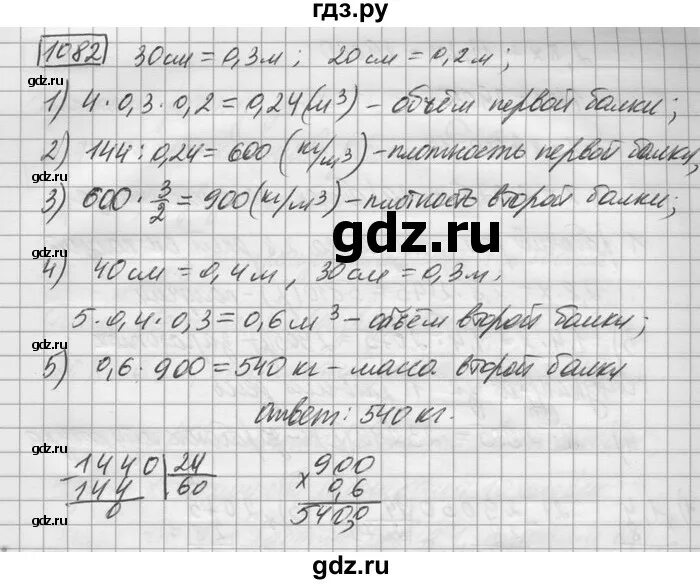 гдз.ру
1082 30 см = 0,3 м ; 20 см = 0,2 м ;
gdz.ru
1) 4 · 0,3 · 0,2 = 0,24 (м³) – объём первой балки ;
gdz.ru
2) 144 : 0,24 = 600 (кг/м³) – плотность первой балки,
gdz.ru
3) 600 · 3/2 = 900 (кг/м³) – плотность второй балки ;
gdz.ru
gdz.ru
4) 40 см = 0,4 м , 30 см = 0,3 м.
gdz.ru
5 · 0,4 · 0,3 = 0,6 м³ – объём второй балки ;
gdz.ru
5) 0,6 · 900 = 540 кг – масса второй балки
gdz.ru
ответ : 540 кг.
gdz.ru
1440 24
144 60
0
900
× 0,6
540,0
gdz.ru
gdz.ru
gdz.ru